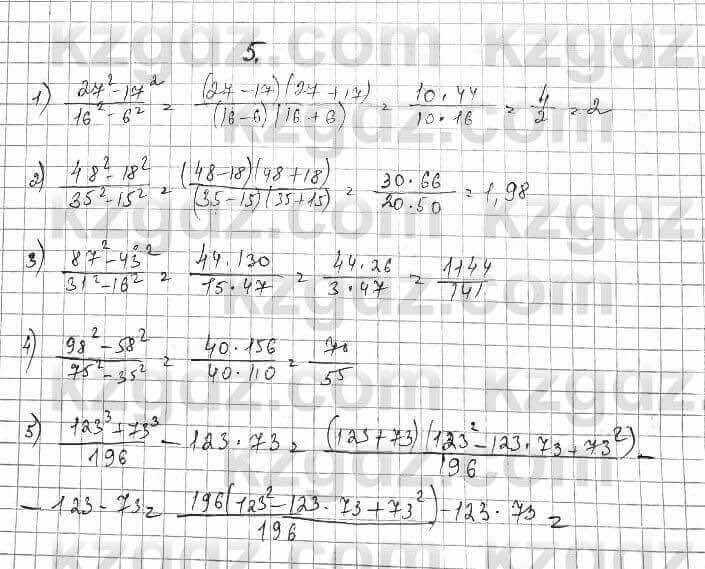 5.
1) (27² - 17²)/(16² - 6²) = ((27 - 17)(27 + 17))/((16 - 6)(16 + 6)) = (10 · 44)/(10 · 16) = 4/2 = 2
2) (48² - 18²)/(35² - 15²) = ((48 - 18)(48 + 18))/((35 - 15)(35 + 15)) = (30 · 66)/(20 · 50) = 1,98
3) (87² - 43²)/(31² - 16²) = (44 · 130)/(15 · 47) = (44 · 26)/(3 · 47) = 1144/141
4) (98² - 58²)/(75² - 35²) = (40 · 156)/(40 · 110) = 78/55
5) (123³ + 73³)/196 - 123 · 73 = ((123 + 73)(123² - 123 · 73 + 73²))/196 -
- 123 · 73 = (196(123² - 123 · 73 + 73²))/196 - 123 · 73 =
kzgdz.com